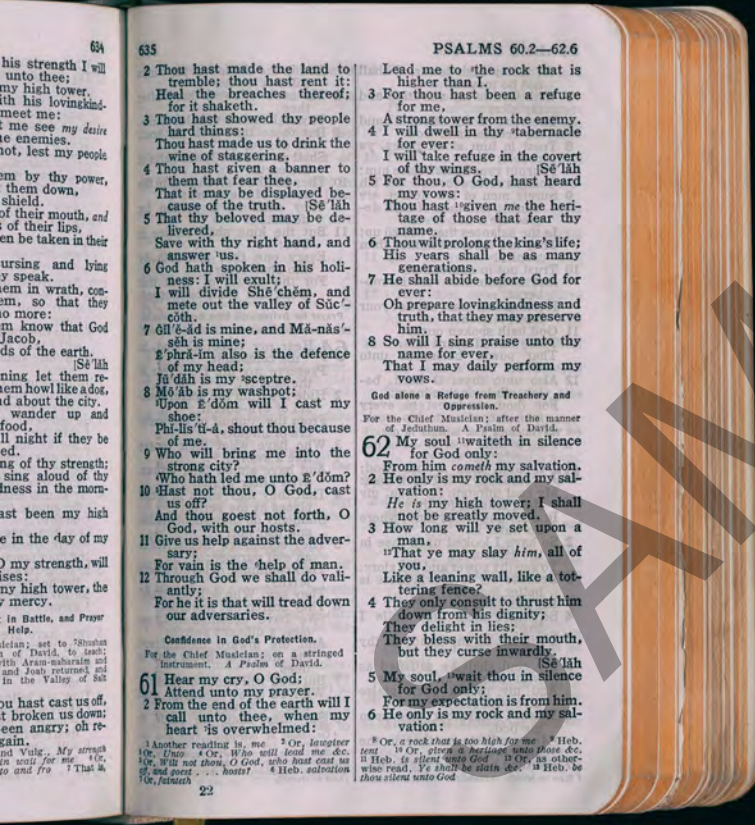 634
his strength I will
unto thee;
my high tower.
ith his lovingkind-
meet me:
t me see my desire
e enemies.
not, lest my people
em by thy power,
them down,
shield.
of their mouth, and
s of their lips,
en be taken in their
ursing and lying
y speak.
em in wrath, con-
em, so that they
no more:
em know that God
Jacob,
ds of the earth.
[Sē´lāh
ning let them re-
hem howl like a dog,
nd about the city.
wander up and
food,
ll night if they be
ed.
ng of thy strength;
sing aloud of thy
dness in the morn-
ast been my high
e in the day of my
O my strength, will
ises:
ny high tower, the
y mercy.
in Battle, and Prayer
Help.
ician; set to ⁷Shushan
of David, to teach;
with Aram-naharaim and
and Joab returned, and
in the Valley of Salt
ou hast cast us off,
t broken us down;
een angry; oh re-
gain.
nd Vulg., My strength
in wait for me ⁴Or,
to and fro ⁷That is,
635
2 Thou hast made the land to
tremble; thou hast rent it:
Heal the breaches thereof;
for it shaketh.
3 Thou hast showed thy people
hard things:
Thou hast made us to drink the
wine of staggering.
4 Thou hast given a banner to
them that fear thee,
That it may be displayed be-
cause of the truth. [Sē´lāh
5 That thy beloved may be de-
livered,
Save with thy right hand, and
answer ¹us.
6 God hath spoken in his holi-
ness: I will exult;
I will divide Shē´chĕm, and
mete out the valley of Sŭc´-
cŏth.
7 Gĭl´ĕ-ăd is mine, and Mă-năs´-
sĕh is mine;
Ē´phră-ĭm also is the defence
of my head;
Jū´dăh is my ²sceptre.
8 Mō´ăb is my washpot;
³Upon Ē´dŏm will I cast my
shoe:
Phĭ-lĭs´tĭ-ȧ, shout thou because
of me.
9 Who will bring me into the
strong city?
⁴Who hath led me unto Ē´dŏm?
10 ⁵Hast not thou, O God, cast
us off?
And thou goest not forth, O
God, with our hosts.
11 Give us help against the adver-
sary;
For vain is the ⁶help of man.
12 Through God we shall do vali-
antly;
For he it is that will tread down
our adversaries.
Confidence in God's Protection.
For the Chief Musician; on a stringed
instrument. A Psalm of David.
61 Hear my cry, O God;
Attend unto my prayer.
2 From the end of the earth will I
call unto thee, when my
heart ⁷is overwhelmed:
¹ Another reading is, me ² Or, lawgiver
³ Or, Unto ⁴ Or, Who will lead me &c.
⁵ Or, Wilt not thou, O God, who hast cast us
off, and goest . . . hosts? ⁶ Heb. salvation
⁷ Or, fainteth
22
PSALMS 60.2—62.6
Lead me to ⁸the rock that is
higher than I.
3 For thou hast been a refuge
for me,
A strong tower from the enemy.
4 I will dwell in thy ⁹tabernacle
for ever:
I will take refuge in the covert
of thy wings. [Sē´lāh
5 For thou, O God, hast heard
my vows:
Thou hast ¹⁰given me the heri-
tage of those that fear thy
name.
6 Thou wilt prolong the king's life;
His years shall be as many
generations.
7 He shall abide before God for
ever:
Oh prepare lovingkindness and
truth, that they may preserve
him.
8 So will I sing praise unto thy
name for ever,
That I may daily perform my
vows.
God alone a Refuge from Treachery and
Oppression.
For the Chief Musician; after the manner
of Jeduthun. A Psalm of David.
62 My soul ¹¹waiteth in silence
for God only:
From him cometh my salvation.
2 He only is my rock and my sal-
vation:
He is my high tower; I shall
not be greatly moved.
3 How long will ye set upon a
man,
¹²That ye may slay him, all of
you,
Like a leaning wall, like a tot-
tering fence?
4 They only consult to thrust him
down from his dignity;
They delight in lies;
They bless with their mouth,
but they curse inwardly.
[Sē´lāh
5 My soul, ¹³wait thou in silence
for God only;
For my expectation is from him.
6 He only is my rock and my sal-
vation:
⁸ Or, a rock that is too high for me ⁹ Heb.
tent ¹⁰ Or, given a heritage unto those &c.
¹¹ Heb. is silent unto God ¹² Or, as other-
wise read, Ye shall be slain &c. ¹³ Heb. be
thou silent unto God